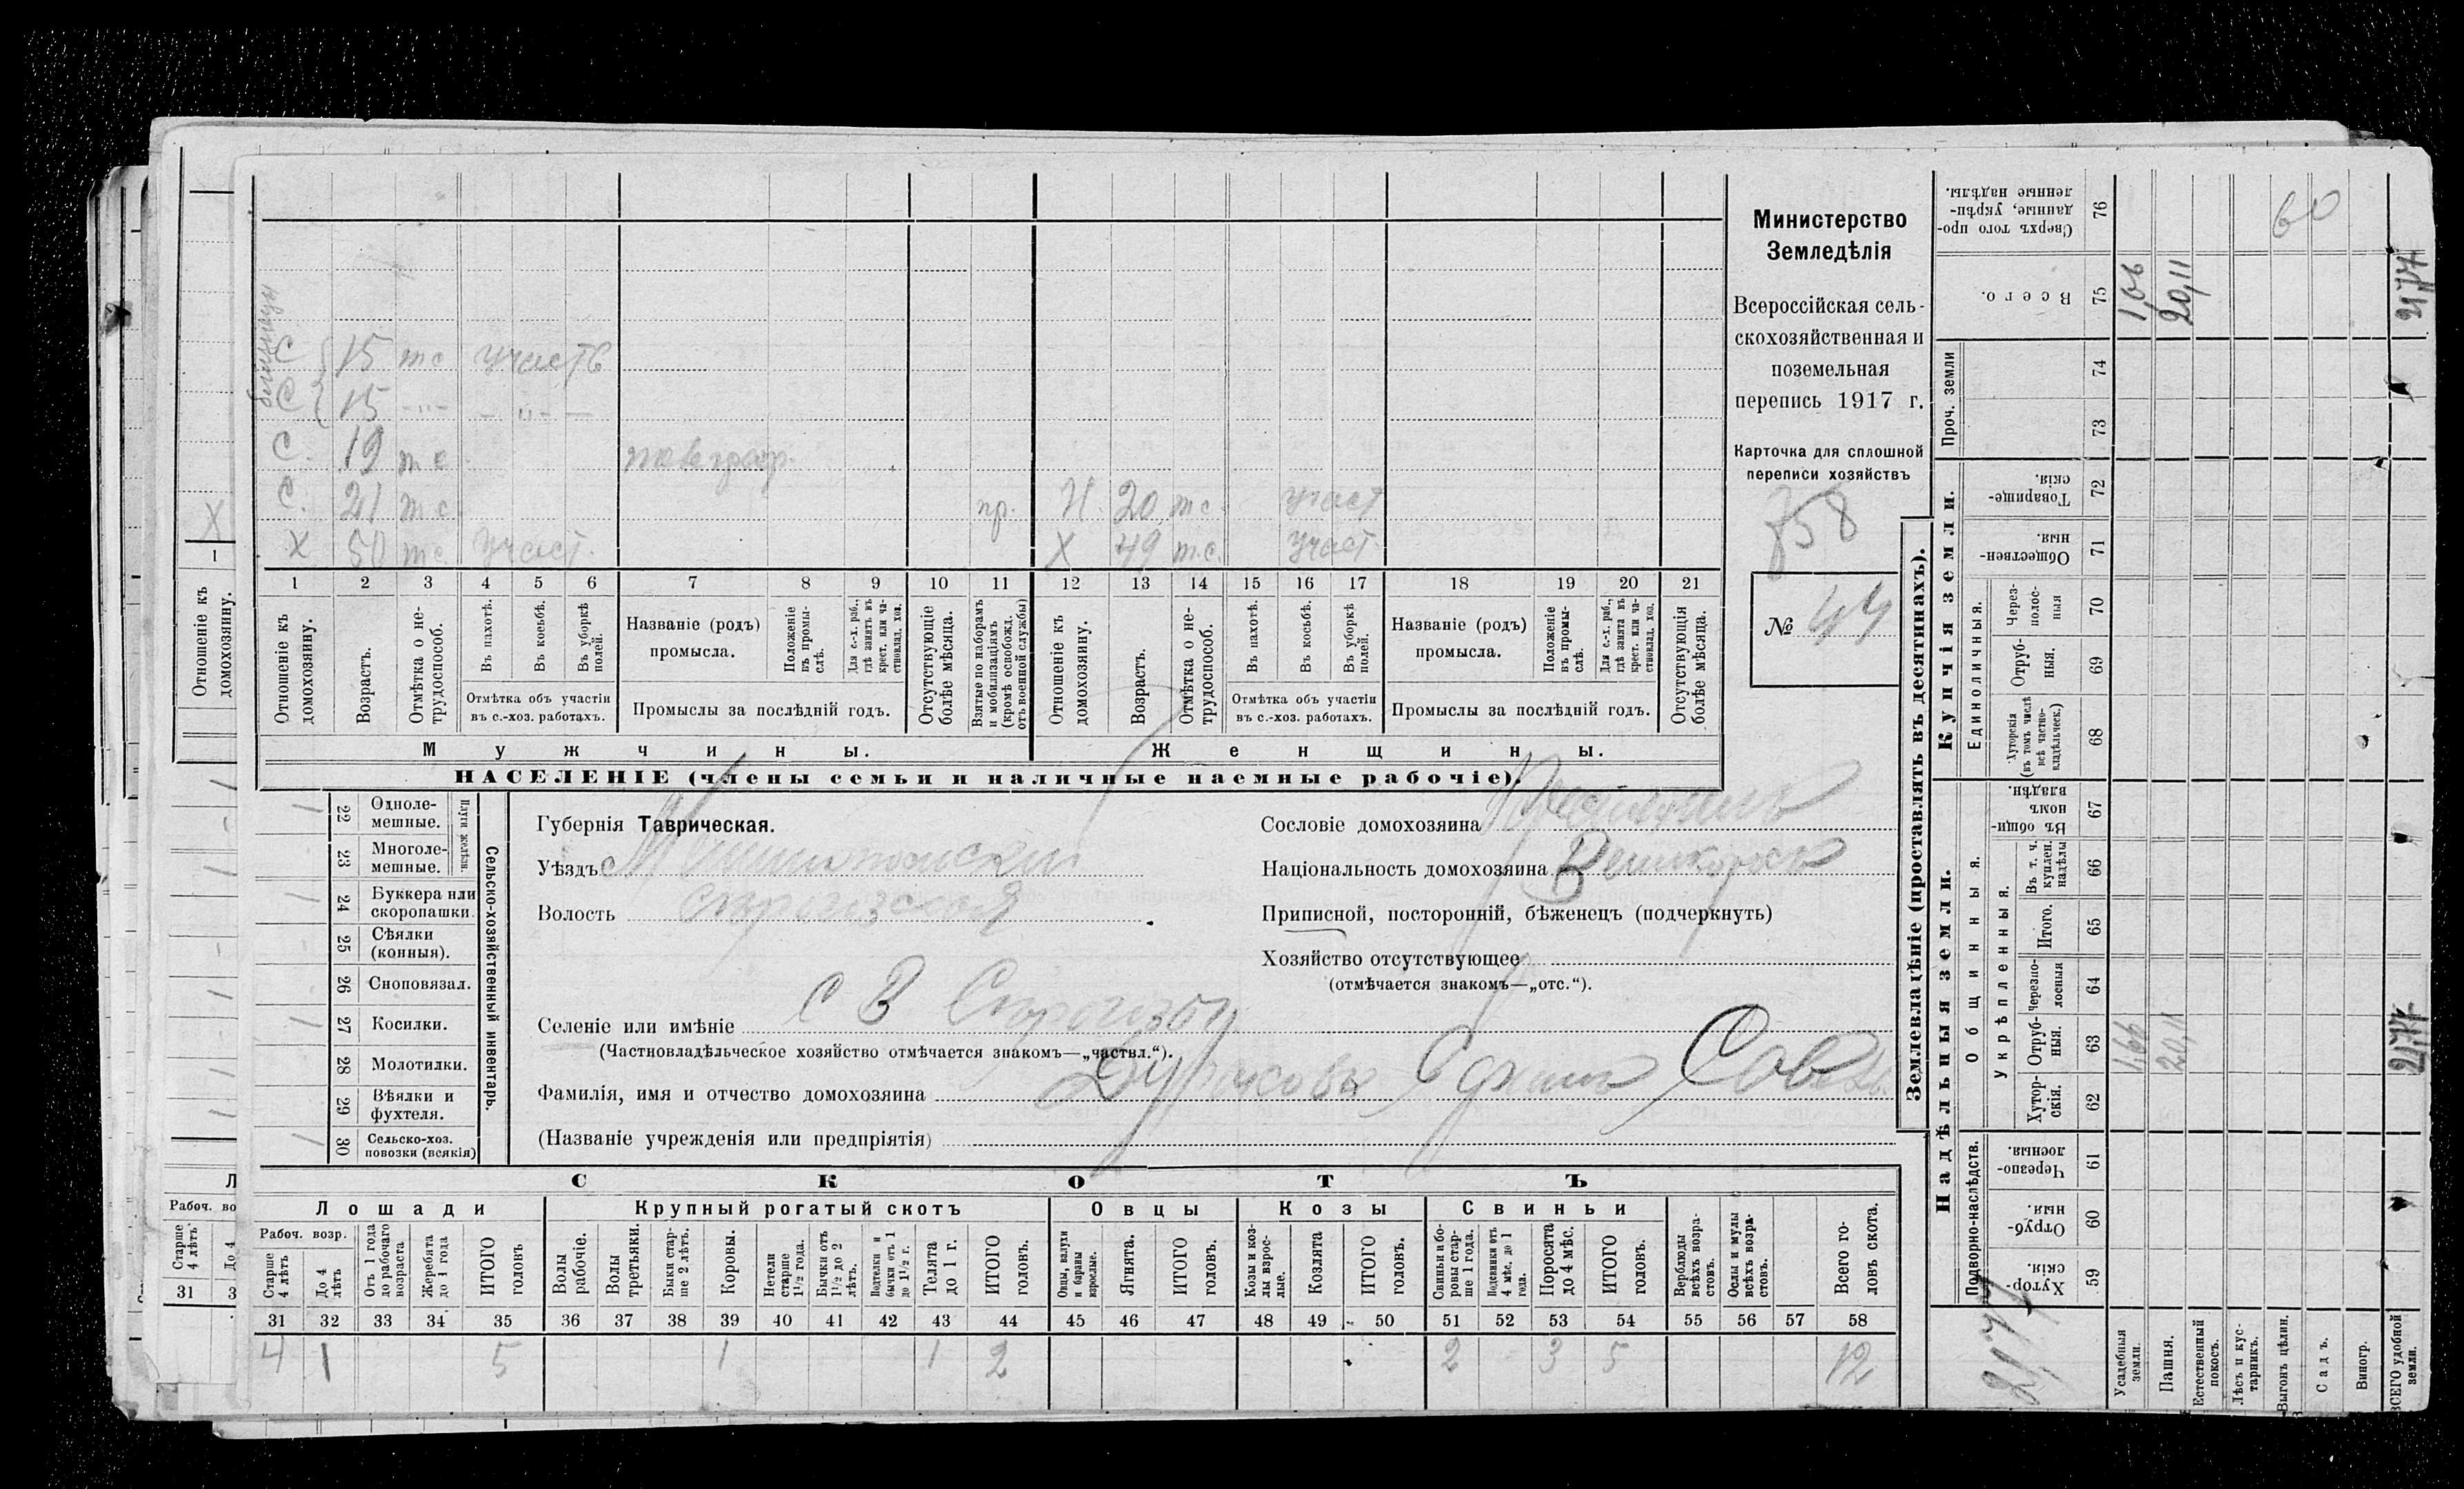 близнецы
С 15 тс участв
С 15 -"- - " -
С. 19 тс.
С. 21 тс. пр. Н. 20 тс. участ
Х 50 тс. участ. Х 49 т.с. участ.
1 2 3 4 5 6 7 8 9 10 11 12 13 14 15 16 17 18 19 20 21
Отношеніе къ домохозяину.
Возрастъ.
Отмѣтка о нетрудоспособ.
Въ пахотѣ.
Въ косьбѣ.
Въ уборкѣ полей.
Отмѣтка объ участіи въ с.-хоз. работахъ.
Названіе (родъ) промысла.
Положеніе въ промыслѣ.
Для с.-х. раб., гдѣ занятъ въ крест. или частновлад. хоз.
Промыслы за послѣдній годъ.
Отсутствующіе болѣе мѣсяца.
Взятые по наборамъ и мобилизаціямъ (кромѣ освобожд. отъ военной службы)
Отношеніе къ домохозяину.
Возрастъ.
Отмѣтка о нетрудоспособ.
Въ пахотѣ.
Въ косьбѣ.
Въ уборкѣ полей.
Отмѣтка объ участіи въ с.-хоз. работахъ.
Названіе (родъ) промысла.
Положеніе въ промыслѣ.
Для с.-х. раб., гдѣ занята въ крест. или частновлад. хоз.
Промыслы за послѣдній годъ.
Отсутствующія болѣе мѣсяца.
Мужчины.
Женщины.
НАСЕЛЕНІЕ (члены семьи и наличные наемные рабочіе).
Министерство
Земледѣлія
Всероссійская сель-
скохозяйственная и
поземельная
перепись 1917 г.
Карточка для сплошной
переписи хозяйствъ
№ 44
Сельско-хозяйственный инвентарь.
Плуги желѣзн.
22 Одноле-мешные. 1
23 Многоле-мешные.
24 Буккера или скоропашки. 1
25 Сѣялки (конныя).
26 Сноповязал.
27 Косилки. 1
28 Молотилки.
29 Вѣялки и фухтеля.
30 Сельско-хоз. повозки (всякія) 1
Губернія Таврическая.
Уѣздъ Мелитопольскій
Волость
Селеніе или имѣніе с В
(Частновладѣльческое хозяйство отмѣчается знакомъ—„частвл.“).
Фамилія, имя и отчество домохозяина
(Названіе учрежденія или предпріятія)
Сословіе домохозяина
Національность домохозяина Великоросъ
Приписной, посторонній, бѣженецъ (подчеркнуть)
Хозяйство отсутствующее
(отмѣчается знакомъ—„отс.“).
СКОТЪ
Лошади Крупный рогатый скотъ Овцы Козы Свиньи
Рабоч. возр.
Старше 4 лѣтъ
До 4 лѣтъ
Отъ 1 года до рабочаго возраста
Жеребята до 1 года
ИТОГО головъ
Волы рабочіе.
Волы третьяки.
Быки старше 2 лѣтъ.
Коровы.
Нетели старше 1½ года.
Бычки отъ 1½ до 2 лѣтъ.
Подтелки и бычки отъ 1 до 1½ г.
Телята до 1 г.
ИТОГО головъ.
Овцы, валухи и бараны взрослые.
Ягнята.
ИТОГО головъ.
Козы и козлы взрослые.
Козлята
ИТОГО головъ.
Свиньи и боровы старше 1 года.
Подсвинки отъ 4 мѣс. до 1 года.
Поросята до 4 мѣс.
ИТОГО головъ.
Верблюды всѣхъ возрастовъ.
Ослы и мулы всѣхъ возрастовъ.
Всего головъ скота.
31 32 33 34 35 36 37 38 39 40 41 42 43 44 45 46 47 48 49 50 51 52 53 54 55 56 57 58
4 1 5 1 1 2 2 3 5 12
Землевладѣніе (проставлять въ десятинахъ).
Надѣльныя земли.
Купчія земли.
Проч. земли
Подворно-наслѣдств.
Общинныя.
Укрѣпленныя.
Единоличныя.
Хуторскія. 59
Отрубныя. 60
Черезполосныя. 61
Хуторскія. 62
Отрубныя. 63
Черезполосныя 64
Итого. 65
Въ т. ч. куплен. надѣлы 66
Въ общинномъ владѣн. 67
Хуторскія (въ томъ числѣ всѣ частновладѣльческ.) 68
Отрубныя. 69
Черезполосныя 70
Общественныя. 71
Товарищескія. 72
73
74
Всего. 75
Сверхъ того проданные, укрѣпленные надѣлы. 76
Усадебныя земли. 1,66 1,66
Пашня. 20,11 20,11
Естественный покосъ.
Лѣсъ и кустарникъ.
Выгонъ цѣлин.
Садъ.
Виногр.
ВСЕГО удобной земли. 21,77 21,77
2177
Х
1
Отношеніе къ домохозяину.
Рабоч. во
Старше 4 лѣтъ
До 4
31 3